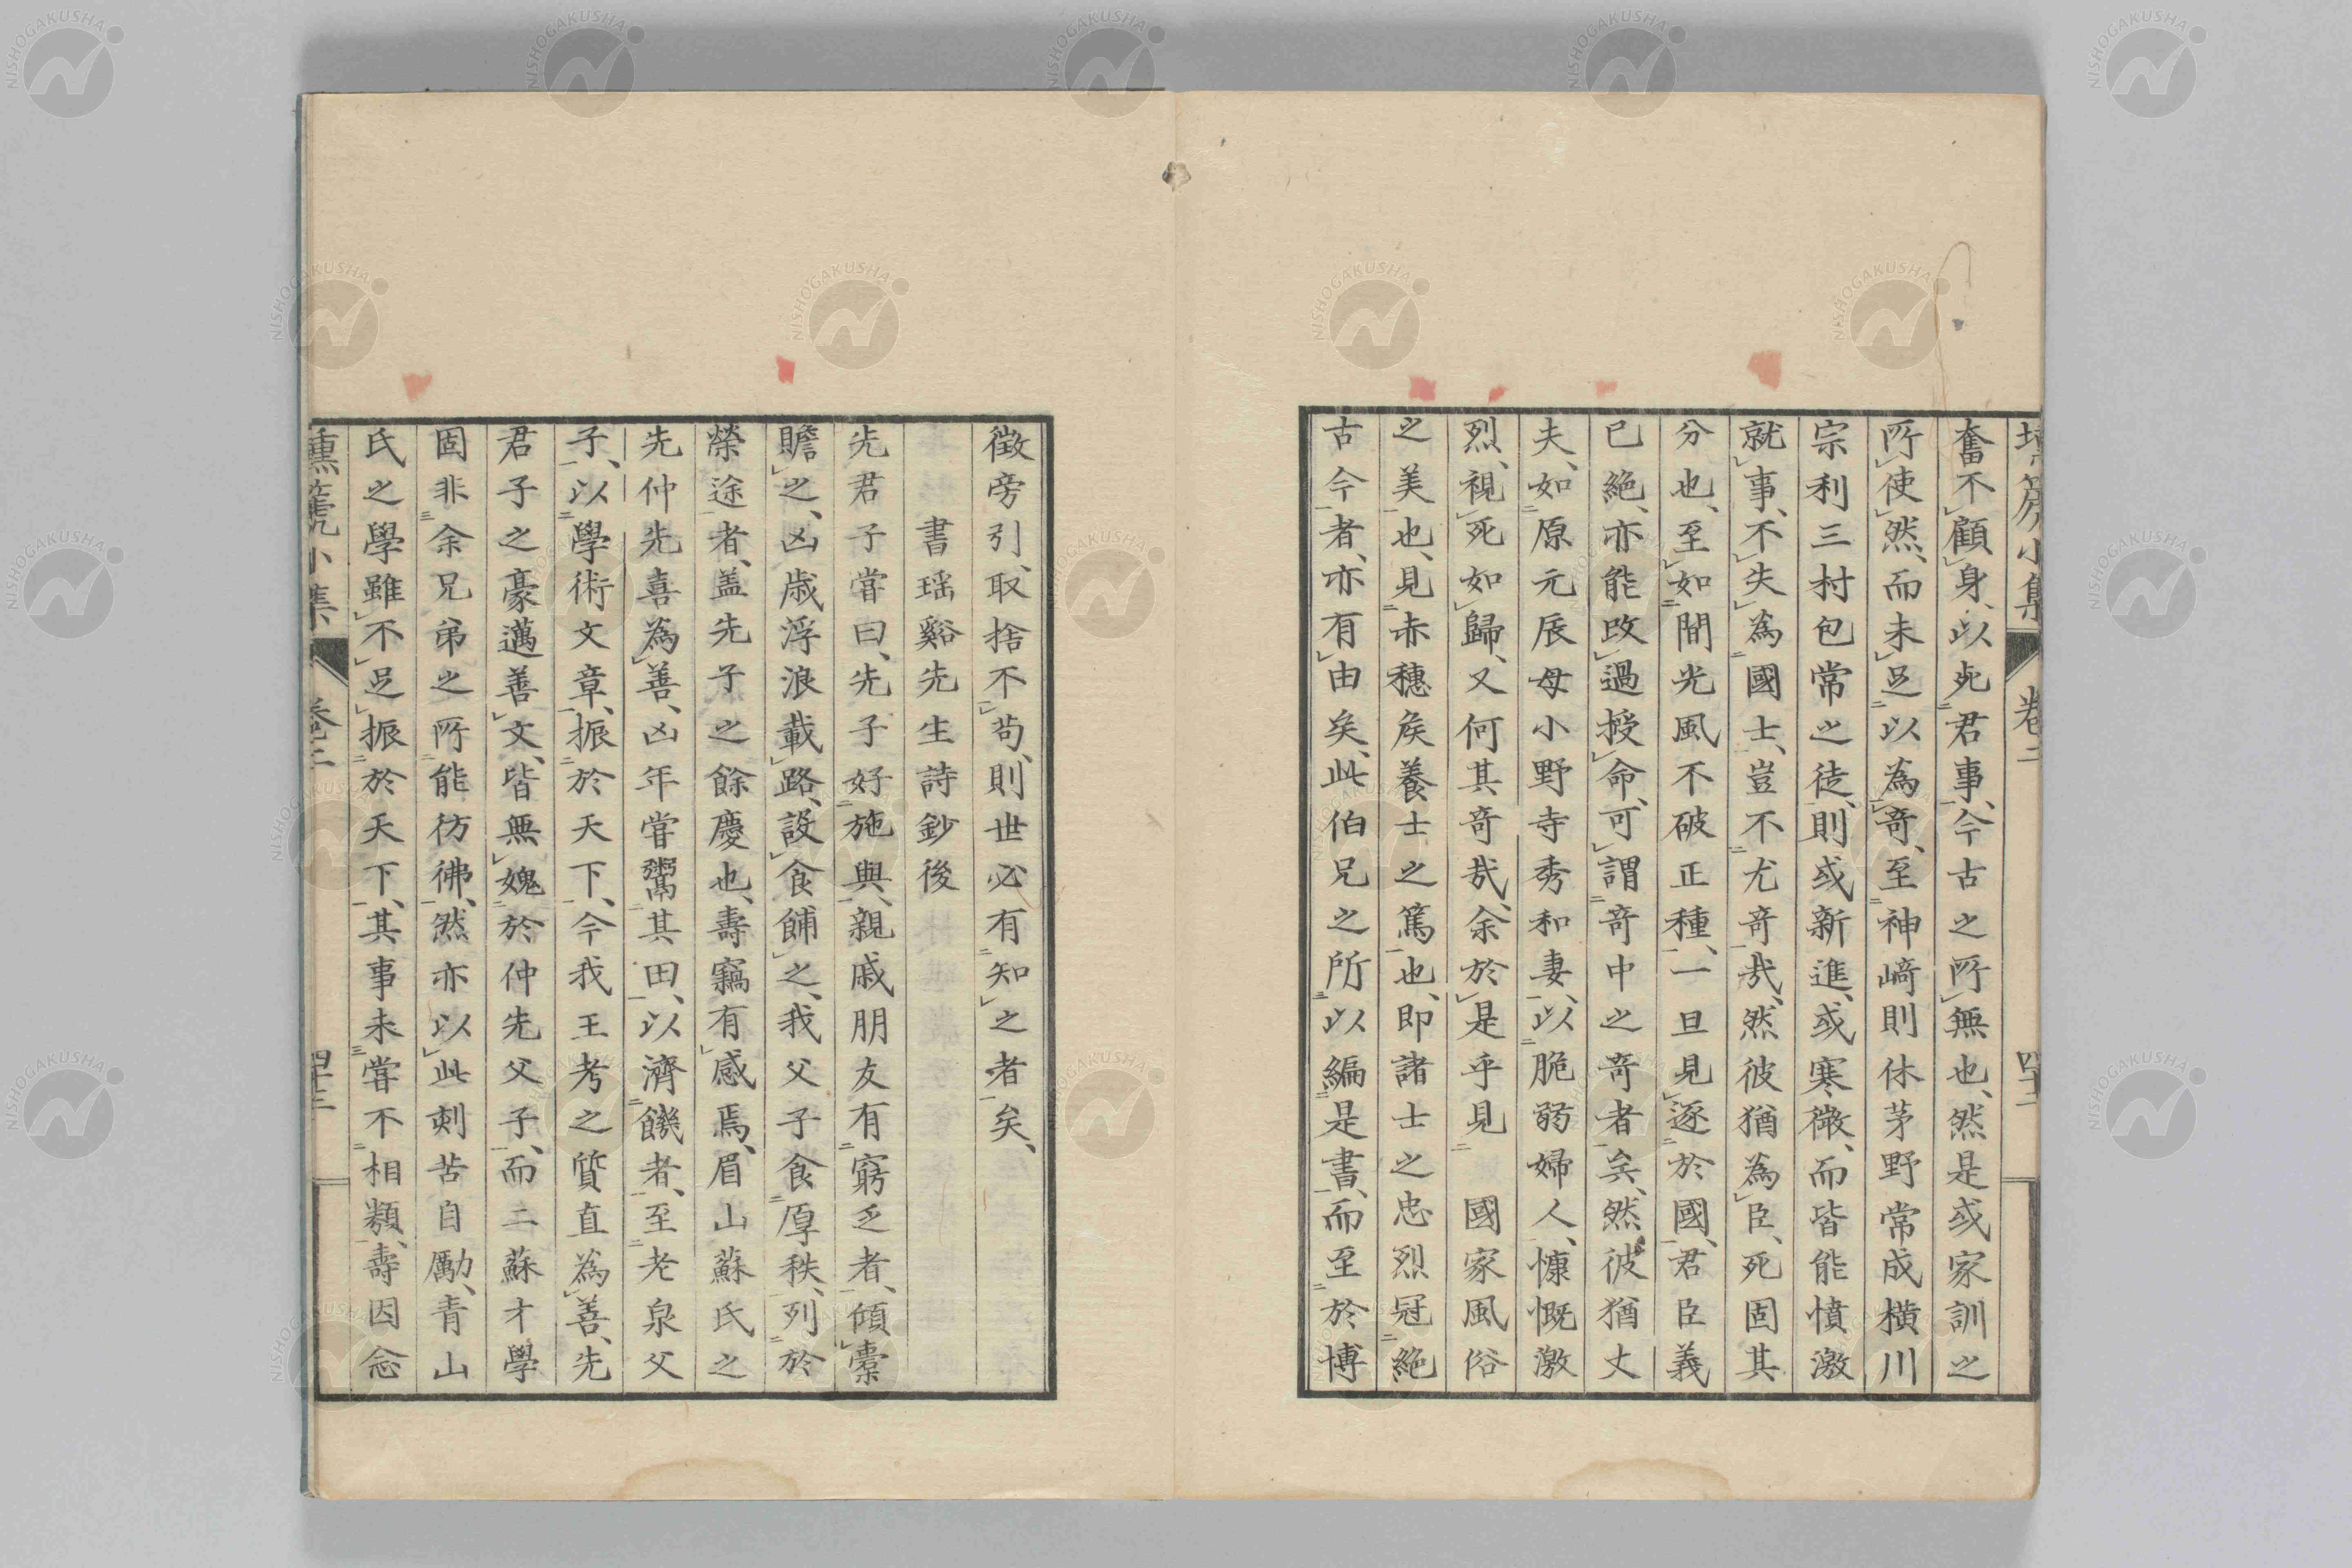 奮不顧身、以死君事、今古之所無也、然是或家訓之
所使然、而未足以為奇、至神崎則休茅野常成橫川
宗利三村包常之徒、則或新進、或寒微、而皆能憤激
就事、不失為國士、豈不尤奇哉、然彼猶為臣、死固其
分也、至如間光風不破正種、一旦見逐於國、君臣義
已絕、亦能改過授命、可謂奇中之奇者矣、然彼猶丈
夫、如原元辰母小野寺秀和妻、以脆弱婦人、慷慨激
烈、視死如歸、又何其奇哉、余於是乎見 國家風俗
之美也、見赤穗矦養士之篤也、即諸士之忠烈冠絕
古今者、亦有由矣、此伯兄之所以編是書、而至於博
卷二
四十二
徵旁引、取捨不苟、則世必有知之者矣、
書瑶谿先生詩鈔後
先君子嘗曰、先子好施與、親戚朋友有窮乏者、傾橐
贍之、凶歲浮浪載路、設食餔之、我父子食厚秩、列於
榮途者、盖先子之餘慶也、壽竊有感焉、眉山蘇氏之
先仲先喜為善、凶年嘗鬻其田、以濟饑者、至老泉父
子、以學術文章、振於天下、今我王考之質直為善、先
君子之豪邁善文、皆無媿於仲先父子、而二蘇才學
固非余兄弟之所能彷彿、然亦以此刺苦自勵、青山
氏之學雖不足振於天下、其事未嘗不相類、壽因念
小集
卷二
四十三